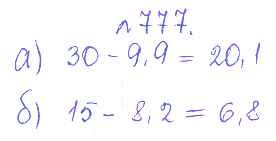 n 777.
а) 30 - 9,9 = 20,1
б) 15 - 8,2 = 6,8